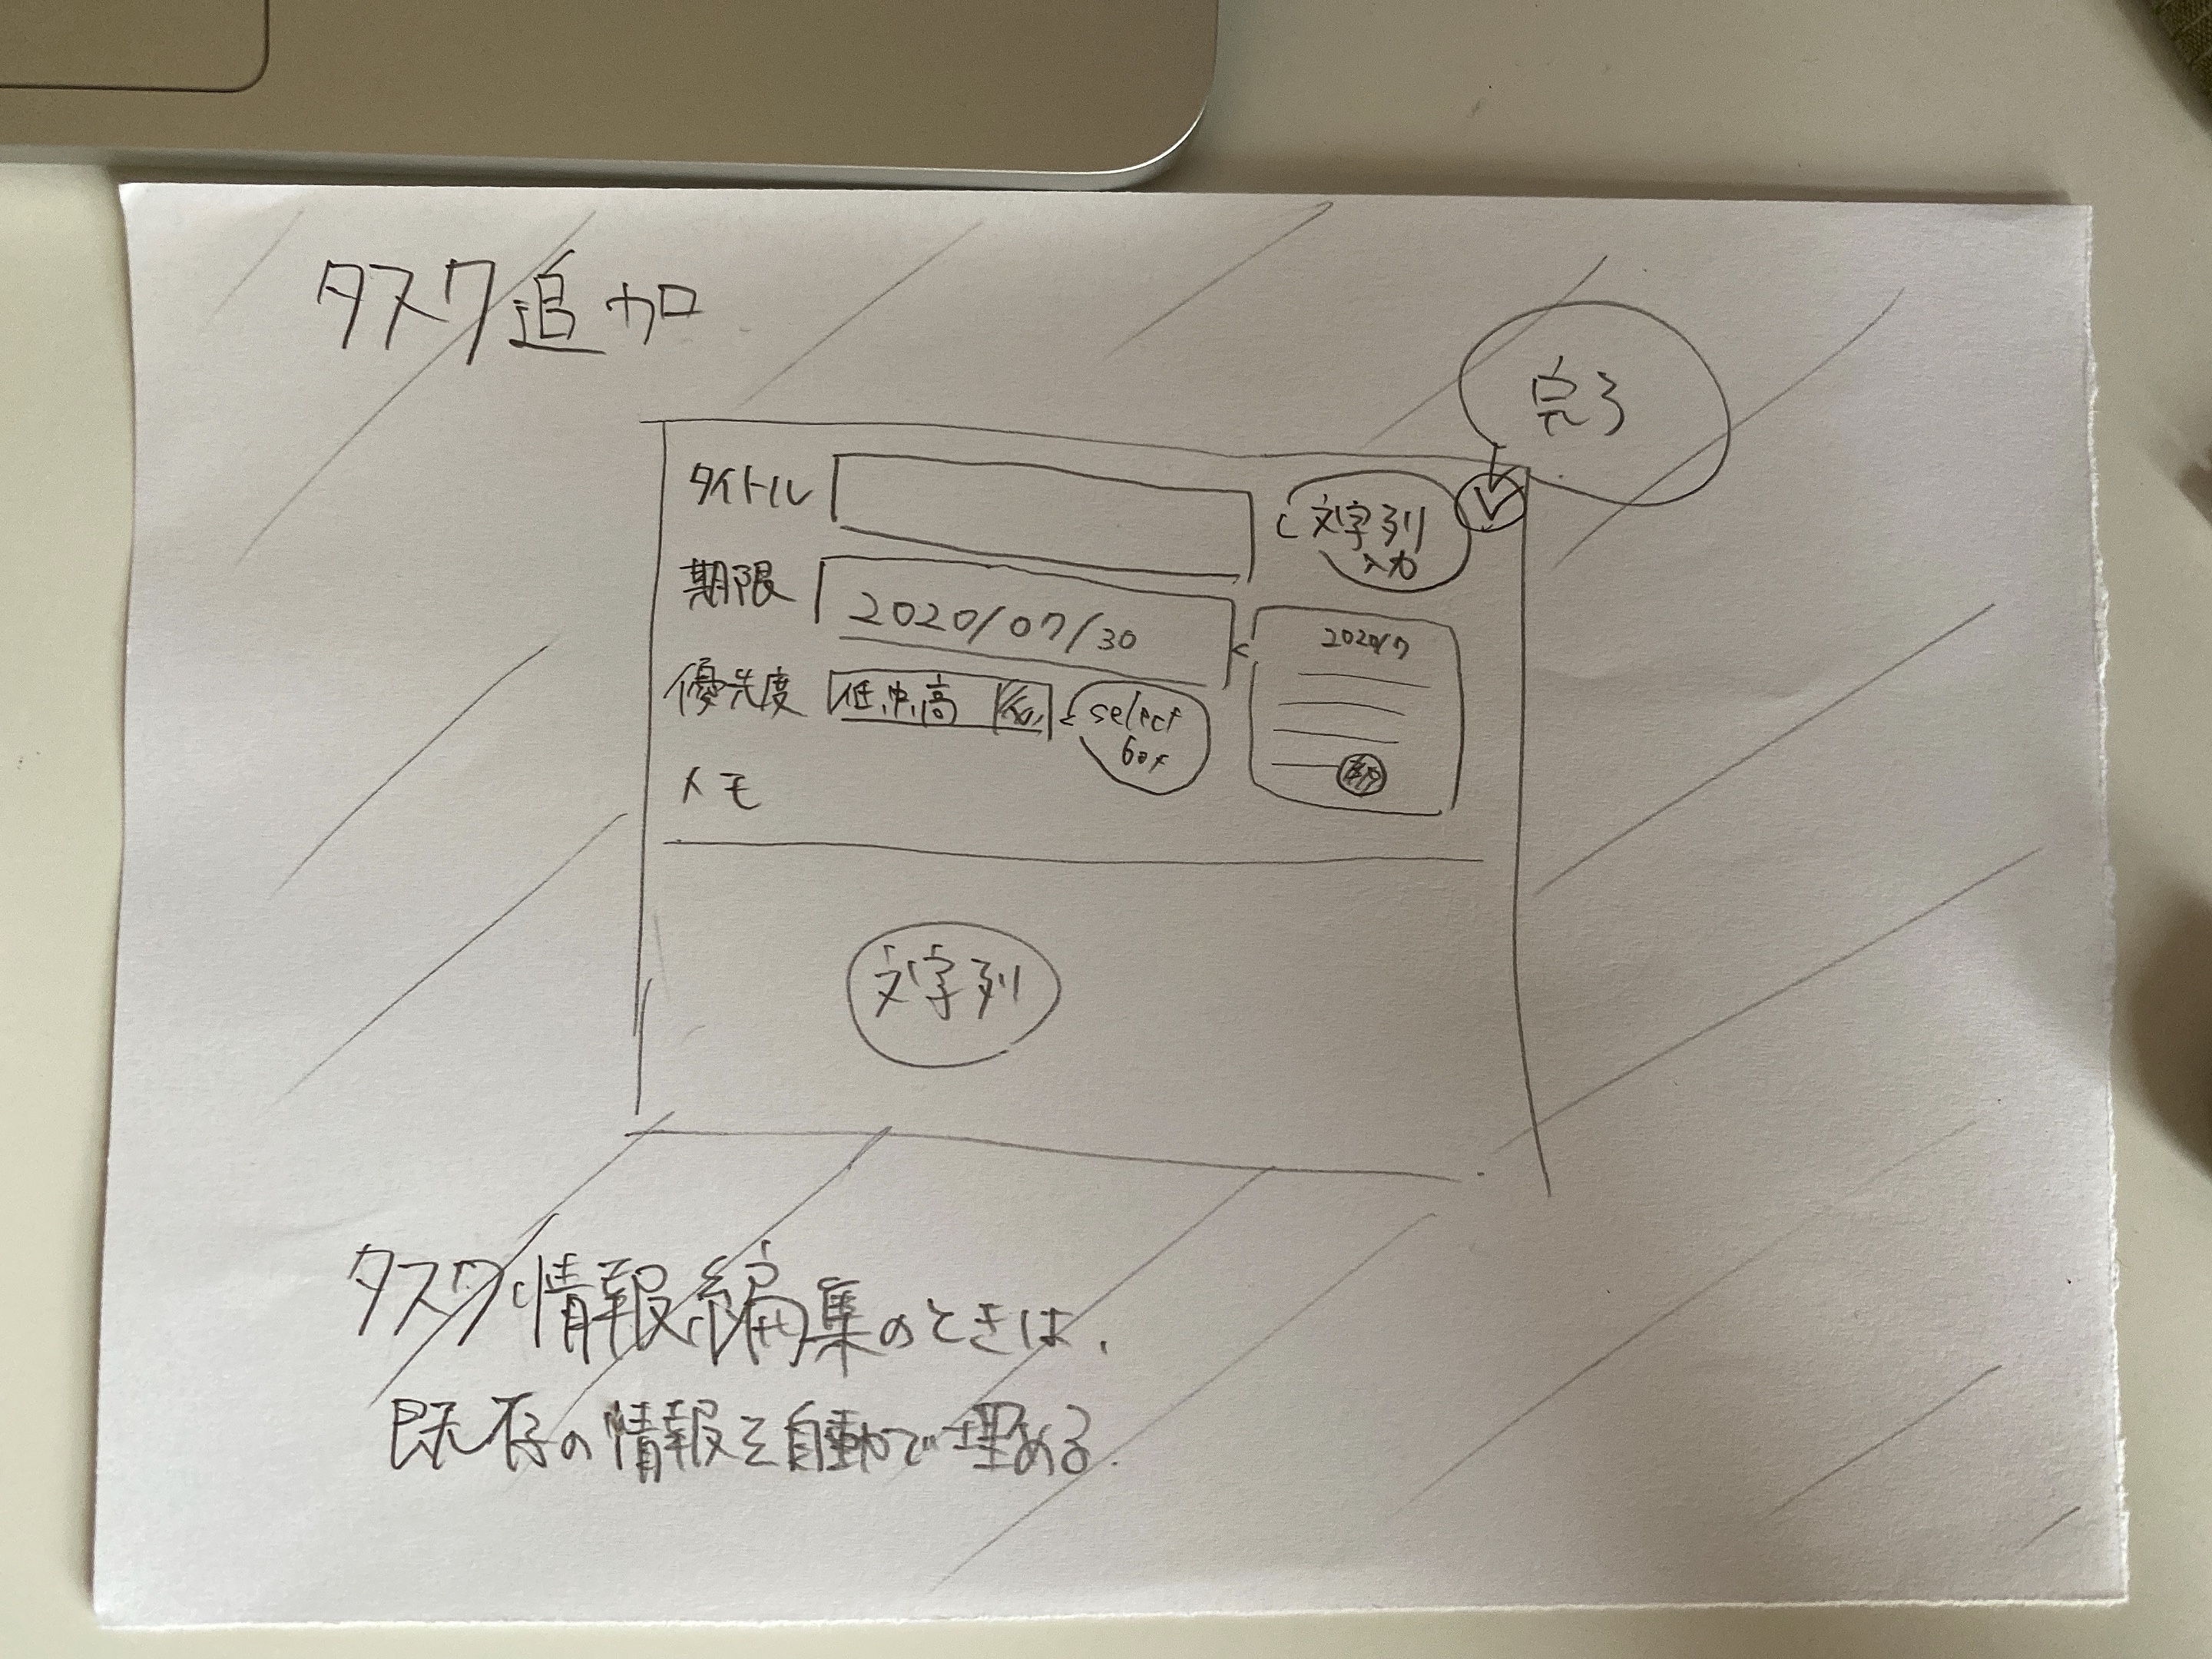 タスク追加
完了
タイトル
文字列
入力
期限
2020/07/30
2020/7
優先度
低,中,高
select
box
メモ
文字列
タスク情報編集のときは、
既存の情報を自動で埋める.